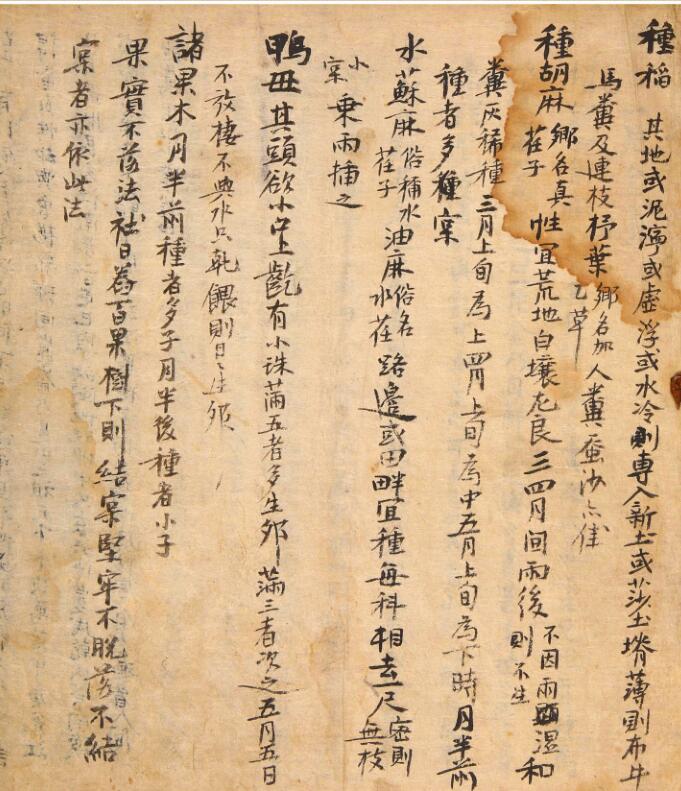 種稻 其地或泥濘或虛浮或水冷則專入新土或莎土塉薄則布牛
馬糞及連枝杼葉鄕名加乙草人糞蚕沙亦佳
種胡麻鄕名真荏子性宜荒地白壤尤良三四月间雨後不因雨湿則不生和
糞灰稀種三月上旬為上四月上旬為中五月上旬為下時月半前
種者多種宲
水蘇麻俗稱水荏子油麻俗名水荏路邉或田畔宜種每科相去一尺密則無枝
小宲乗雨揷之
鴨丑其頭欲小口上齕有小珠滿五者多生卵滿三者次之五月五日
不放棲不與水只乾餵則日〻生卵
諸果木月半前種者多子月半後種者小子
果實不落法社日舂百果樹下則結宲堅牢不脫落不結
宲者亦依此法